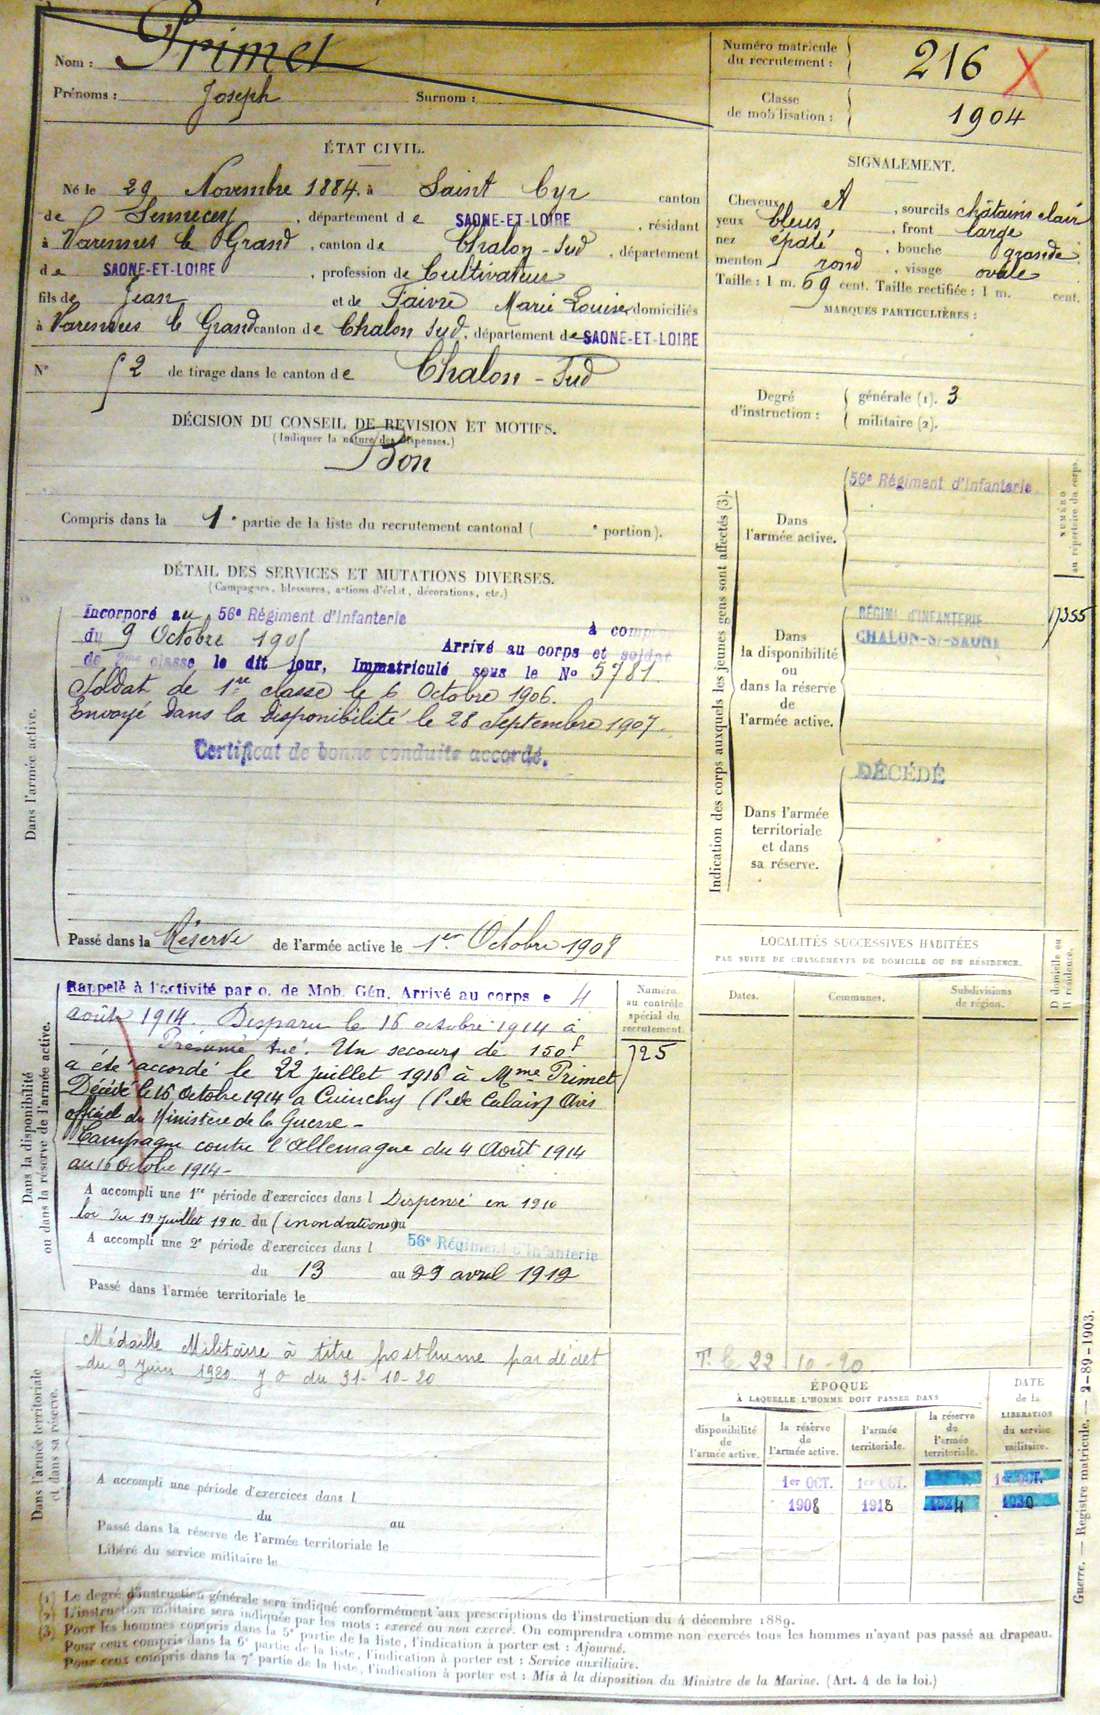 Nom : Primet
Prénoms : Joseph Surnom :
Numéro matricule
du recrutement : 216 X
Classe
de mobilisation : 1904
ÉTAT CIVIL.
Né le 29 Novembre 1884, à Saint Cyr canton
de Sennecey, département de SAONE-ET-LOIRE, résidant
à Varennes le Grand, canton de Chalon-Sud, département
de SAONE-ET-LOIRE, profession de Cultivateur
fils de Jean et de Faivre Marie Louise domiciliés
à Varennes le Grand canton de Chalon Sud, département de SAONE-ET-LOIRE
N° 52 de tirage dans le canton de Chalon-Sud
SIGNALEMENT.
Cheveux, sourcils châtains clair
yeux bleus, front large
nez épaté, bouche grande
menton rond, visage ovale
Taille : 1 m. 69 cent. Taille rectifiée : 1 m. cent.
MARQUES PARTICULIÈRES :
Degré
d'instruction :
générale (1). 3
militaire (2).
DÉCISION DU CONSEIL DE REVISION ET MOTIFS.
(Indiquer la nature des dispenses.)
Bon
Compris dans la 1e partie de la liste du recrutement cantonal ( e portion).
DÉTAIL DES SERVICES ET MUTATIONS DIVERSES.
(Campagnes, blessures, actions d'éclat, décorations, etc.)
Dans l'armée active.
Incorporé au 56e Régiment d'Infanterie à compter
du 9 Octobre 1905 Arrivé au corps et soldat
de 2me classe le dit jour, Immatriculé sous le No 5781.
Soldat de 1re classe le 6 Octobre 1906.
Envoyé dans la disponibilité le 28 Septembre 1907.
Certificat de bonne conduite accordé.
Passé dans la Réserve de l'armée active le 1er Octobre 1908
Indication des corps auxquels les jeunes gens sont affectés (3).
NUMÉRO
au répertoire du corps.
Dans
l'armée active.
56e Régiment d'Infanterie
Dans
la disponibilité
ou
dans la réserve
de
l'armée active.
RÉGIMt D'INFANTERIE
CHALON-S/-SAONE
7355
Dans l'armée
territoriale
et dans
sa réserve.
DÉCÉDÉ
LOCALITÉS SUCCESSIVES HABITÉES
PAR SUITE DE CHANGEMENTS DE DOMICILE OU DE RÉSIDENCE.
Dates.
Communes.
Subdivisions
de région.
D domicile ou
R résidence.
Dans la disponibilité
ou dans la réserve de l'armée active.
Numéro
au contrôle
spécial du
recrutement.
725
Rappelé à l'activité par o. de Mob. Gén. Arrivé au corps le 4
août 1914. Disparu le 16 octobre 1914 à
Présumé tué. Un secours de 150f
a été accordé le 22 juillet 1916 à Mme Primet
Décédé le 16 Octobre 1914 à Cuinchy (P. de Calais) Avis
officiel du Ministère de la Guerre -
Campagne contre l'Allemagne du 4 Août 1914
au 16 Octobre 1914 -
A accompli une 1re période d'exercices dans l Dispensé en 1910
loi du 19 juillet 1910 du (inondations) au
A accompli une 2e période d'exercices dans l 56e Régiment d'Infanterie
du 13 au 29 avril 1912
Passé dans l'armée territoriale le
Dans l'armée territoriale
et dans sa réserve.
Médaille Militaire à titre posthume par décret
du 9 Juin 1920. J O du 31-10-20
A accompli une période d'exercices dans l
du au
Passé dans la réserve de l'armée territoriale le
Libéré du service militaire le
T. le 22-10-20.
ÉPOQUE
À LAQUELLE L'HOMME DOIT PASSER DANS
DATE
de la
LIBÉRATION
du service
militaire.
la
disponibilité
de
l'armée active.
la réserve
de
l'armée active.
l'armée
territoriale.
la réserve
de
l'armée
territoriale.
1er OCT. 1er OCT. 1er OCT.
1908 1918 1924 1930
(1) Le degré d'instruction générale sera indiqué conformément aux prescriptions de l'instruction du 4 décembre 1889.
(2) L'instruction militaire sera indiquée par les mots : exercé ou non exercé. On comprendra comme non exercés tous les hommes n'ayant pas passé au drapeau.
(3) Pour les hommes compris dans la 5e partie de la liste, l'indication à porter est : Ajourné.
Pour ceux compris dans la 6e partie de la liste, l'indication à porter est : Service auxiliaire.
Pour ceux compris dans la 7e partie de la liste, l'indication à porter est : Mis à la disposition du Ministre de la Marine. (Art. 4 de la loi.)
Guerre. — Registre matricule. — 2-89-1903.